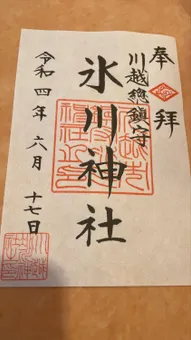 奉拝
川越總鎮守
氷川神社
令和四年六月十七日